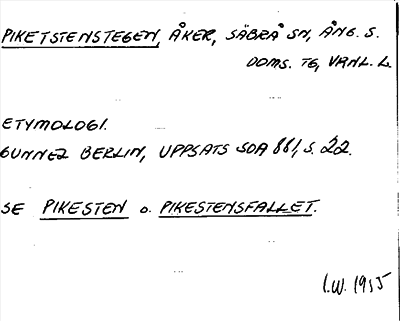 PIKETSTENSTEGEN, ÅKER, SÄBRÅ SN, ÅNG. S.
DOMS. TG, VANL. L.
ETYMOLOGI.
GUNNEL BERLIN, UPPSATS SOA 881, S. 22.
SE PIKESTEN o. PIKESTENSFALLET.
I.W. 1955